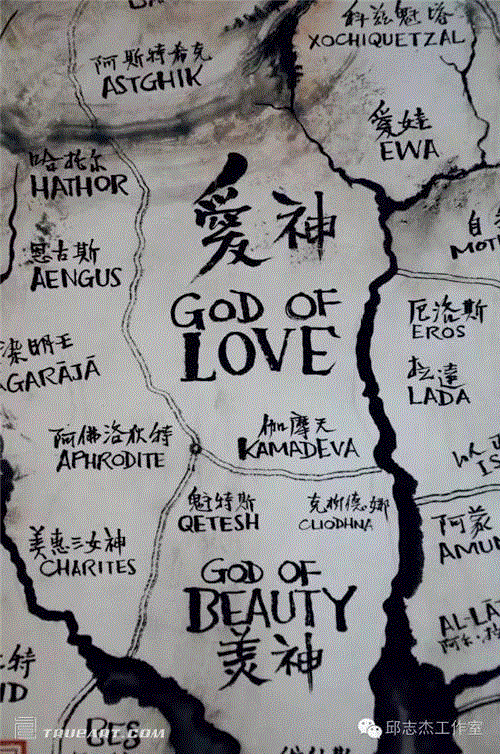 兹魁塔
XOCHIQUETZAL
阿斯特希克
ASTGHIK
愛娃
EWA
哈托尔
HATHOR
愛神
GOD OF
LOVE
恩古斯
AENGUS
自
MOT
厄洛斯
EROS
染明王
GARĀJĀ
拉達
LADA
阿佛洛狄特
APHRODITE
伽摩天
KAMADEVA
IS
魁特斯
QETESH
克柳德娜
CLIODHNA
阿蒙
AMUN
美惠三女神
CHARITES
GOD OF
BEAUTY
美神
AL-LĀ
特
ID
BES
TRUEART.COM
邱志杰工作室